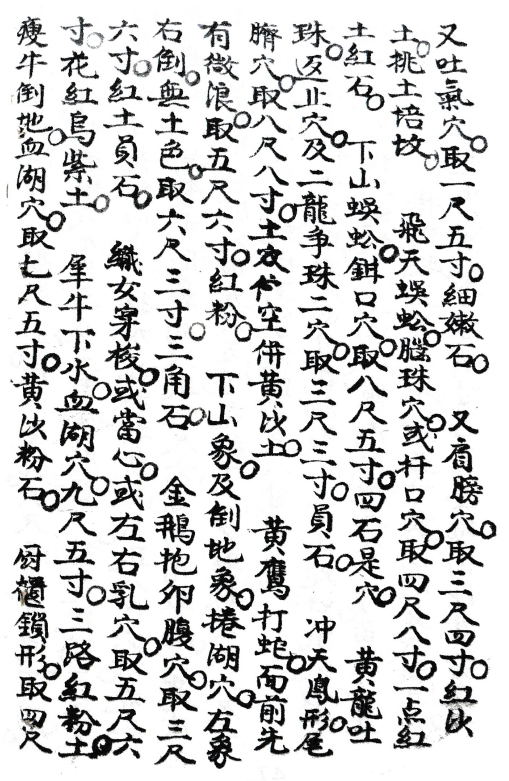 又吐氣穴。取一尺五寸。細嫩石。 又肩膀穴。取三尺四寸。紅沙
土。挑土培坟。 飛天蜈蚣。腦珠穴。或扦口穴。取四尺八寸。一点紅
土紅石。 下山蜈蚣。鉗口穴。取八尺五寸。四石是穴。 黄龍吐
珠。及止穴。及二龍争珠二穴。取三尺三寸。員石。 冲天鳳形。尾
臍穴。取八尺八寸。土皮空併黄沙土。 黄鷹打蛇。面前先
有微浪。取五尺六寸。紅粉。 下山象。及倒地象。捲湖穴。左象
右倒。無土色。取六尺三寸。三角石。 金鵝抱卵。腹穴。取三尺
六寸。紅土員石。 織女穿梭。或當心。或左右乳穴。取五尺六
寸。花紅烏紫土。 犀牛下水。血湖穴。九尺五寸。三路紅粉土。
瘦牛倒地。血湖穴。取七尺五寸。黄沙粉石。 厨櫃鎖形。取四尺